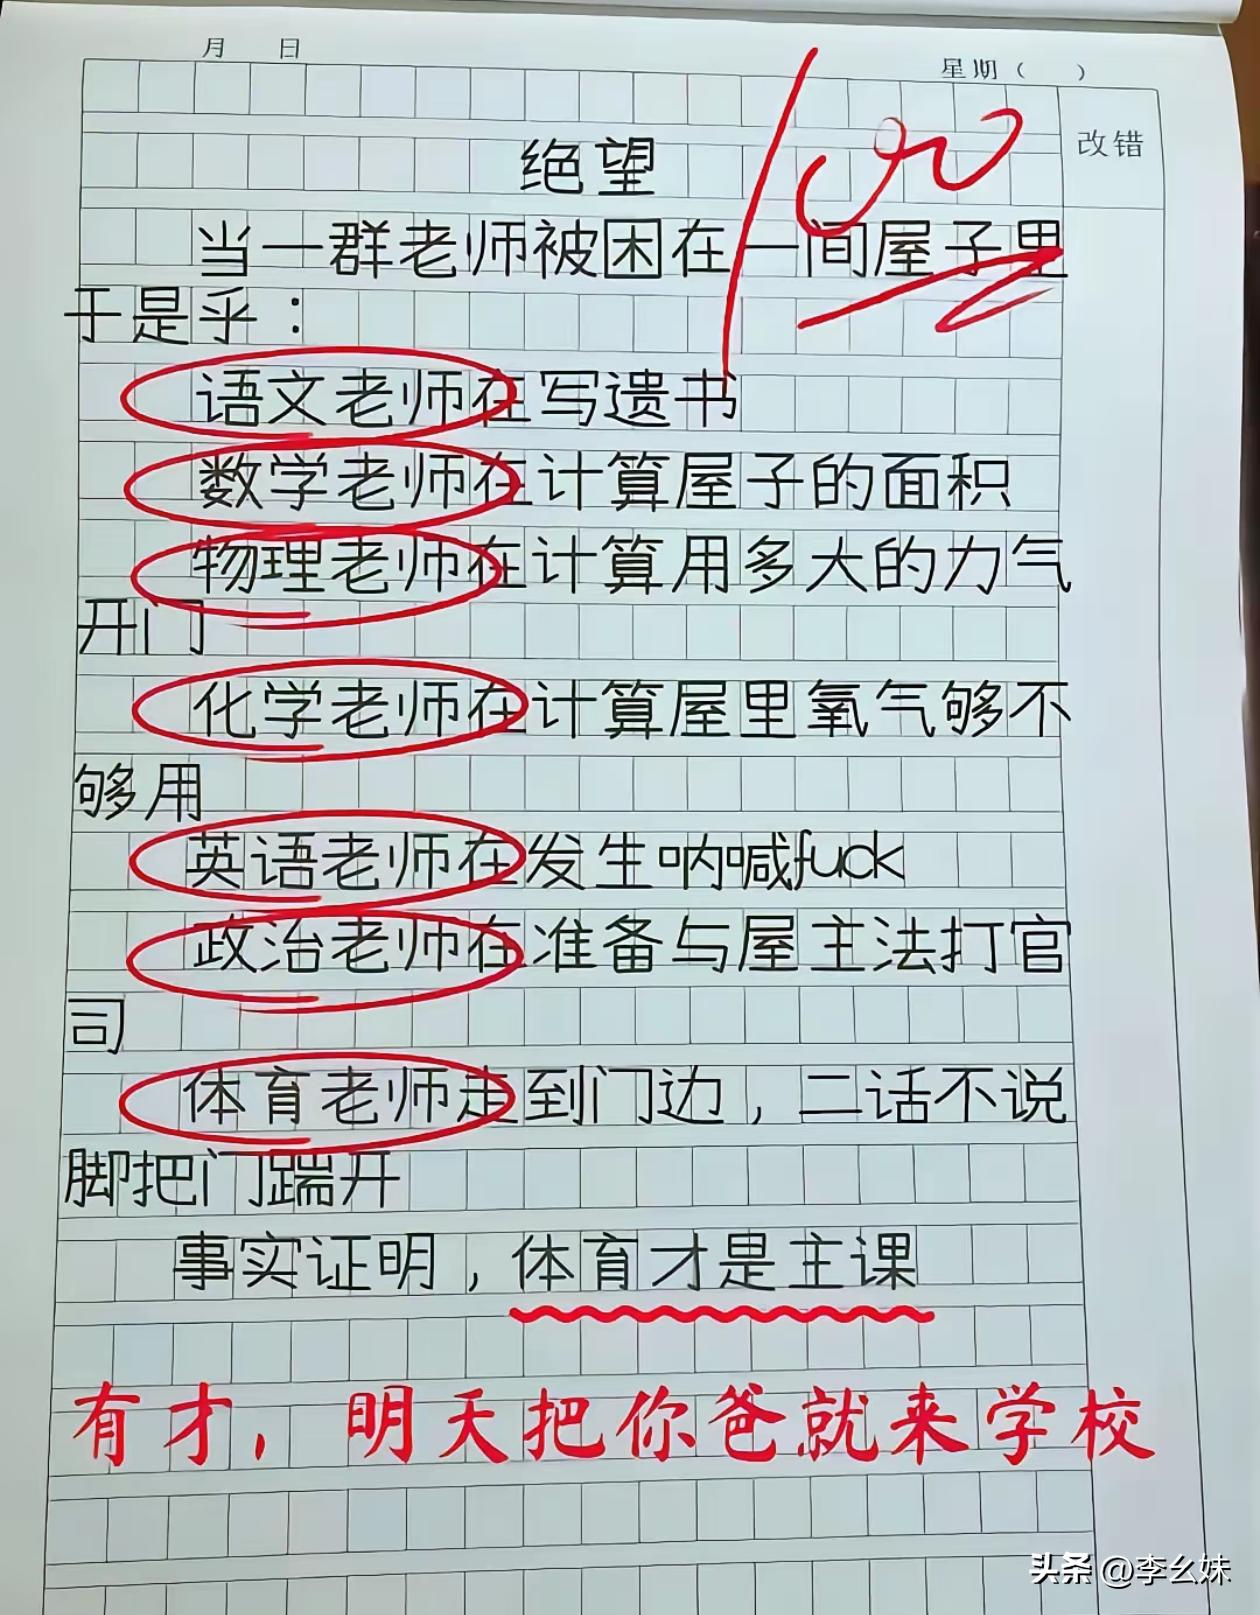 月 日
星期（ ）
改错
100
绝望
当一群老师被困在一间屋子里
于是乎：
语文老师在写遗书
数学老师在计算屋子的面积
物理老师在计算用多大的力气
开门
化学老师在计算屋里氧气够不
够用
英语老师在发生呐喊fuck
政治老师在准备与屋主法打官
司
体育老师走到门边，二话不说
脚把门踹开
事实证明，体育才是主课
有才，明天把你爸就来学校
头条 @李幺妹